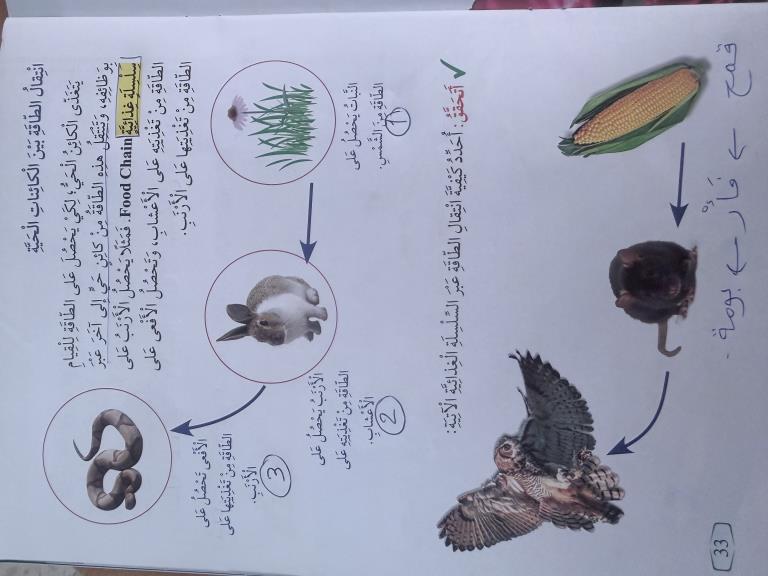 انْتِقالُ الطّاقَةِ بَيْنَ الْكائِناتِ الْحَيَّةِ
يَتَغَذّى الْكائِنُ الْحَيُّ؛ لِكَيْ يَحْصُلَ عَلى الطّاقَةِ لِلْقِيامِ
بِوَظائِفِهِ، وَيَنْتَقِلُ هذِهِ الطّاقَةُ مِنْ كائِنٍ حَيٍّ إِلى آخَرَ عَبْرَ
سِلْسِلَةٍ غِذائِيَّةٍ Food Chain. فَمَثَلًا يَحْصُلُ الْأَرْنَبُ عَلى
الطّاقَةِ مِنْ تَغْذِيَتِهِ عَلى الْأَعْشابِ، وَتَحْصُلُ الْأَفْعى عَلى
الطّاقَةِ مِنْ تَغْذِيَتِها عَلى الْأَرْنَبِ.
النَّباتُ يَحْصُلُ عَلى
الطّاقَةِ مِنَ الشَّمْسِ.
1
الْأَرْنَبُ يَحْصُلُ عَلى
الطّاقَةِ مِنْ تَغْذِيَتِهِ عَلى
الْأَعْشابِ.
2
الْأَفْعى تَحْصُلُ عَلى
الطّاقَةِ مِنْ تَغْذِيَتِها عَلى
الْأَرْنَبِ.
3
✓ أَتَحَقَّقُ: أُحَدِّدُ كَيْفِيَّةَ انْتِقالِ الطّاقَةِ عَبْرَ السِّلْسِلَةِ الْغِذائِيَّةِ الْآتِيَةِ:
قمح ← فأر ← بومة.
33